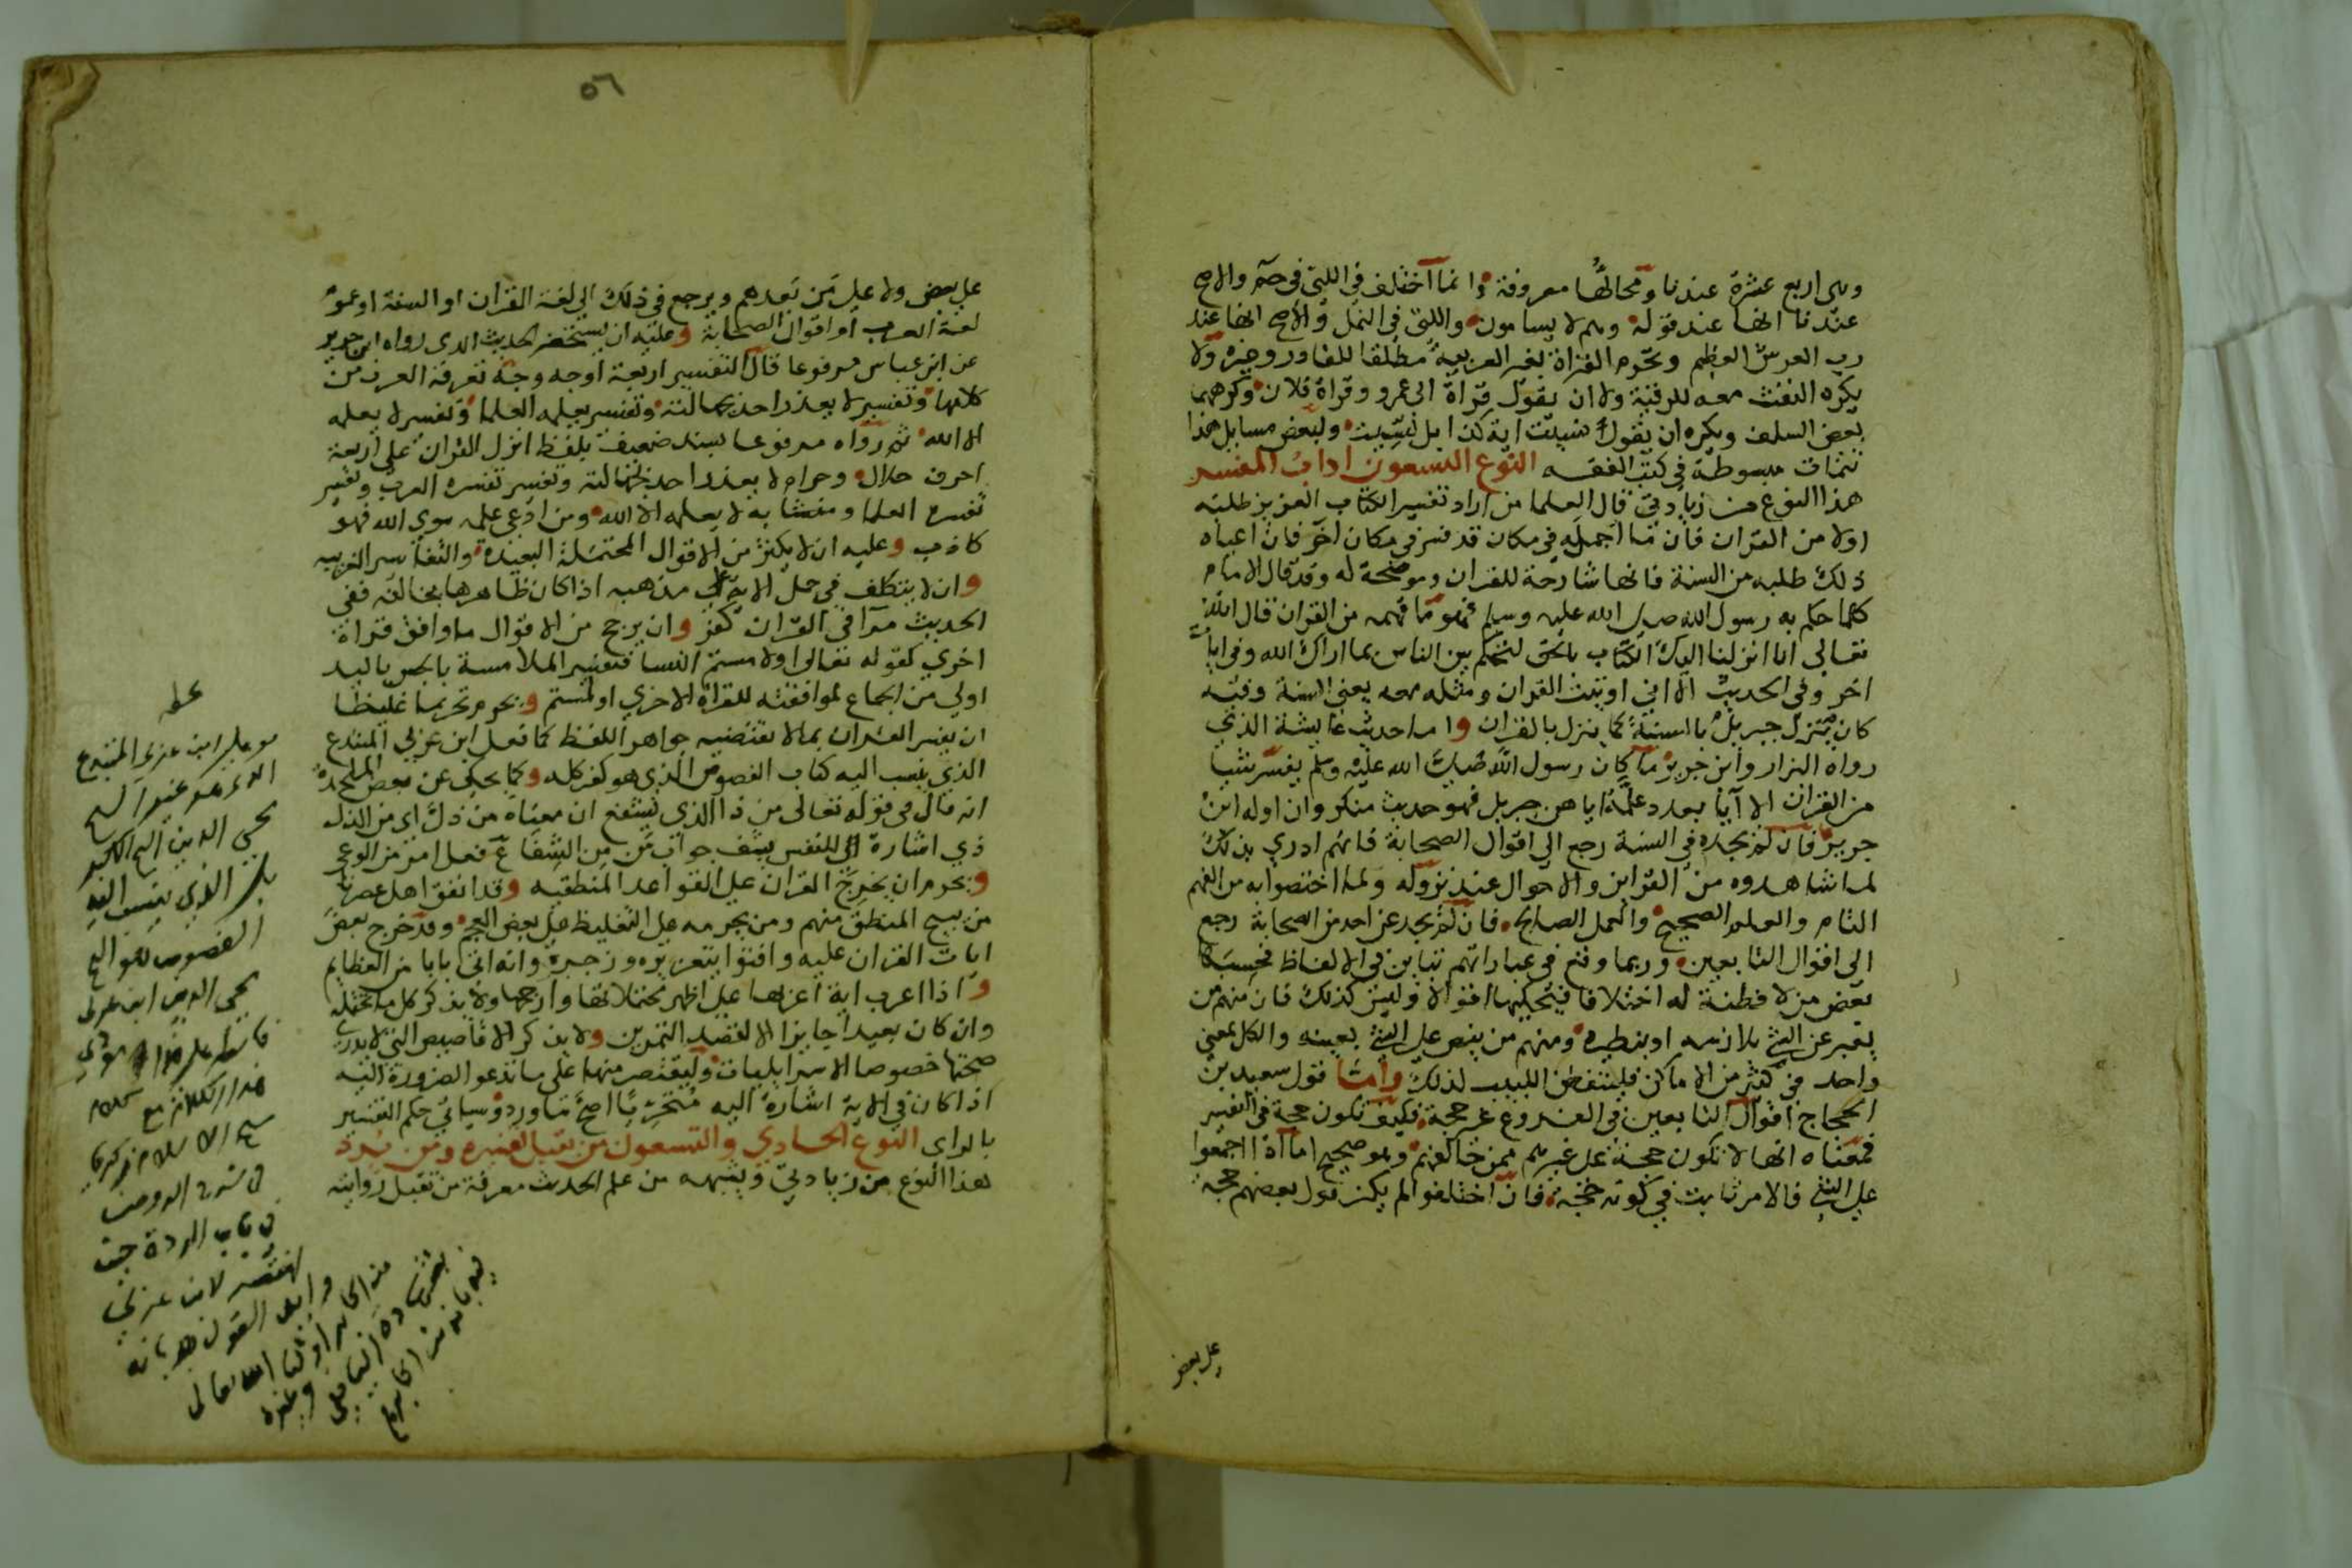 وهى اربع عشرة عندنا ومحالّها معروفة وانما اختلف فى اللتى فى حم والاصح
عندنا انها عند قوله وهم لا يسامون واللتى فى النمل والاصح انها عند
رب العرش العظيم وتحرم القراة بغير العربية مطلقا للقادر وغيره ولا
يكره النفث معه للرقية ولا ان يقول قراة ابى عمرو وقراة فلان وكرههما
بعض السلف ويكره ان يقول نسيت اية كذا بل نسّيت ولبعض مسايل هذا
تتمات مبسوطة فى كتب الفقه النوع التسعون اداب المفسر
هذا النوع من زيادتى قال العلما من اراد تفسير الكتاب العزيز طلبه
اولا من القران فان ما اجمله فى مكان قد فسر فى مكان اخر فان اعياه
ذلك طلبه من السنة فانها شارحة للقران وموضحة له وقد قال الامام
كلما حكم به رسول الله صلى الله عليه وسلم فهو مما فهمه من القران قال الله
تعالى انا انزلنا اليك الكتاب بالحق لتحكم بين الناس بما اراك الله وفى ايات
اخر وفى الحديث الا انى اوتيت القران ومثله معه يعنى السنة وفيه
كان ينزل جبريل بالسنة كما ينزل بالقران واما حديث عايشة الذى
رواه البزار وابن جرير ما كان رسول الله صلى الله عليه وسلم يفسر شيا
من القران الا آيا بعدد علمه اياهن جبريل فهو حديث منكر وان اوله ابن
جرير فان لم يجده فى السنة رجع الى اقوال الصحابة فانهم ادرى بذلك
لما شاهدوه من القراين والاحوال عند نزوله ولما اختصوا به من الفهم
التام والعلم الصحيح والعمل الصالح فان لم يجد عن احد من الصحابة رجع
الى اقوال التابعين وربما وقع فى عباراتهم تباين فى الالفاظ فحسبها
بعض من لا فطنة له اختلافا فيحكيها اقوالا وليس كذلك فان منهم من
يعبر عن الشئ بلازمه او بنظيره ومنهم من ينص على الشئ بعينه والكل بمعنى
واحد فى كثير من الاماكن فليتفطن اللبيب لذلك واما قول سعيد بن
الحجاج اقوال التابعين فى الفروع غير حجة فكيف تكون حجة فى التفسير
فمعناه انها لا تكون حجة على غيرهم ممن خالفهم وهو صحيح اما اذا اجمعوا
على الشئ فالامر ثابت فى كونه حجة فان اختلفوا لم يكن قول بعضهم حجة
على بعض
٥٦
على بعض ولا على من بعدهم ويرجع فى ذلك الى لغة القران او السنة او عموم
لغة العرب او اقوال الصحابة وعليه ان يستحضر الحديث الذى رواه ابن جرير
عن ابن عباس مرفوعا قال التفسير اربعة اوجه وجه تعرفه العرب من
كلامها وتفسير لا يعذر احد بجهالته وتفسير يعلمه العلما وتفسير لا يعلمه
الا الله ثم رواه مرفوعا بسند ضعيف بلفظ انزل القران على اربعة
احرف حلال وحرام لا يعذر احد بجهالته وتفسير تفسره العرب وتفسير
تفسره العلما ومتشابه لا يعلمه الا الله ومن ادعى علمه سوى الله فهو
كاذب وعليه ان لا يكثر من الاقوال المحتملة البعيدة والتفاسير الغريبة
وان لا يتكلف فى حمل الاية على مذهبه اذا كان ظاهرها يخالفه ففى
الحديث مرآ فى القران كفر وان يرجح من الاقوال ما وافق قراة
اخرى كقوله تعالى او لامستم النسا فتفسير الملامسة بالجس باليد
اولى من الجماع لموافقته للقراة الاخرى او لمستم ويحرم تحريما غليظا
ان يفسر القران بما لا يقتضيه جواهر اللفظ كما فعل ابن عربى المبتدع
الذى ينسب اليه كتاب الفصوص الذى هو كفر كله وكما يحكى عن بعض الملحدة
انه قال فى قوله تعالى من ذا الذى يشفع ان معناه من ذل اى من الذل
ذى اشارة الى النفس يشف جواب من من الشفا ع فعل امر من الوعى
ويحرم ان يخرج القران على القواعد المنطقية وقد اتفق اهل عصرنا
من يبيح المنطق منهم ومن يحرمه على التغليظ على بعض العجم وقد خرج بعض
ايات القران عليه وافتوا بتعزيره وزجره وانه اتى بابا من العظايم
واذا اعرب اية اعربها على اظهر محتملاتها وارجحها ولا يذكر كل ما تحتمله
وان كان بعيدا جايزا الا لقصد التمرين ولا يذكر الاقاصيص التى لا يدرى
صحتها خصوصا الاسرايليات وليقتصر منها على ما تدعو الضرورة اليه
اذا كان فى الاية اشارة اليه متحريا اصح ما ورد وسياتى حكم التفسير
بالراى النوع الحادى والتسعون من يقبل تفسيره ومن يرد
هذا النوع من زيادتى ويشبهه من علم الحديث معرفة من تقبل روايته
ابن عربى المبتدع
محيى الدين
الذى ينسب اليه
الفصوص
محيى الدين ابن عربى
هذا الكلام مع كلام
شيخ الاسلام زكريا
فى شرح الروض
فى باب الردة حيث
انتصر لابن عربى